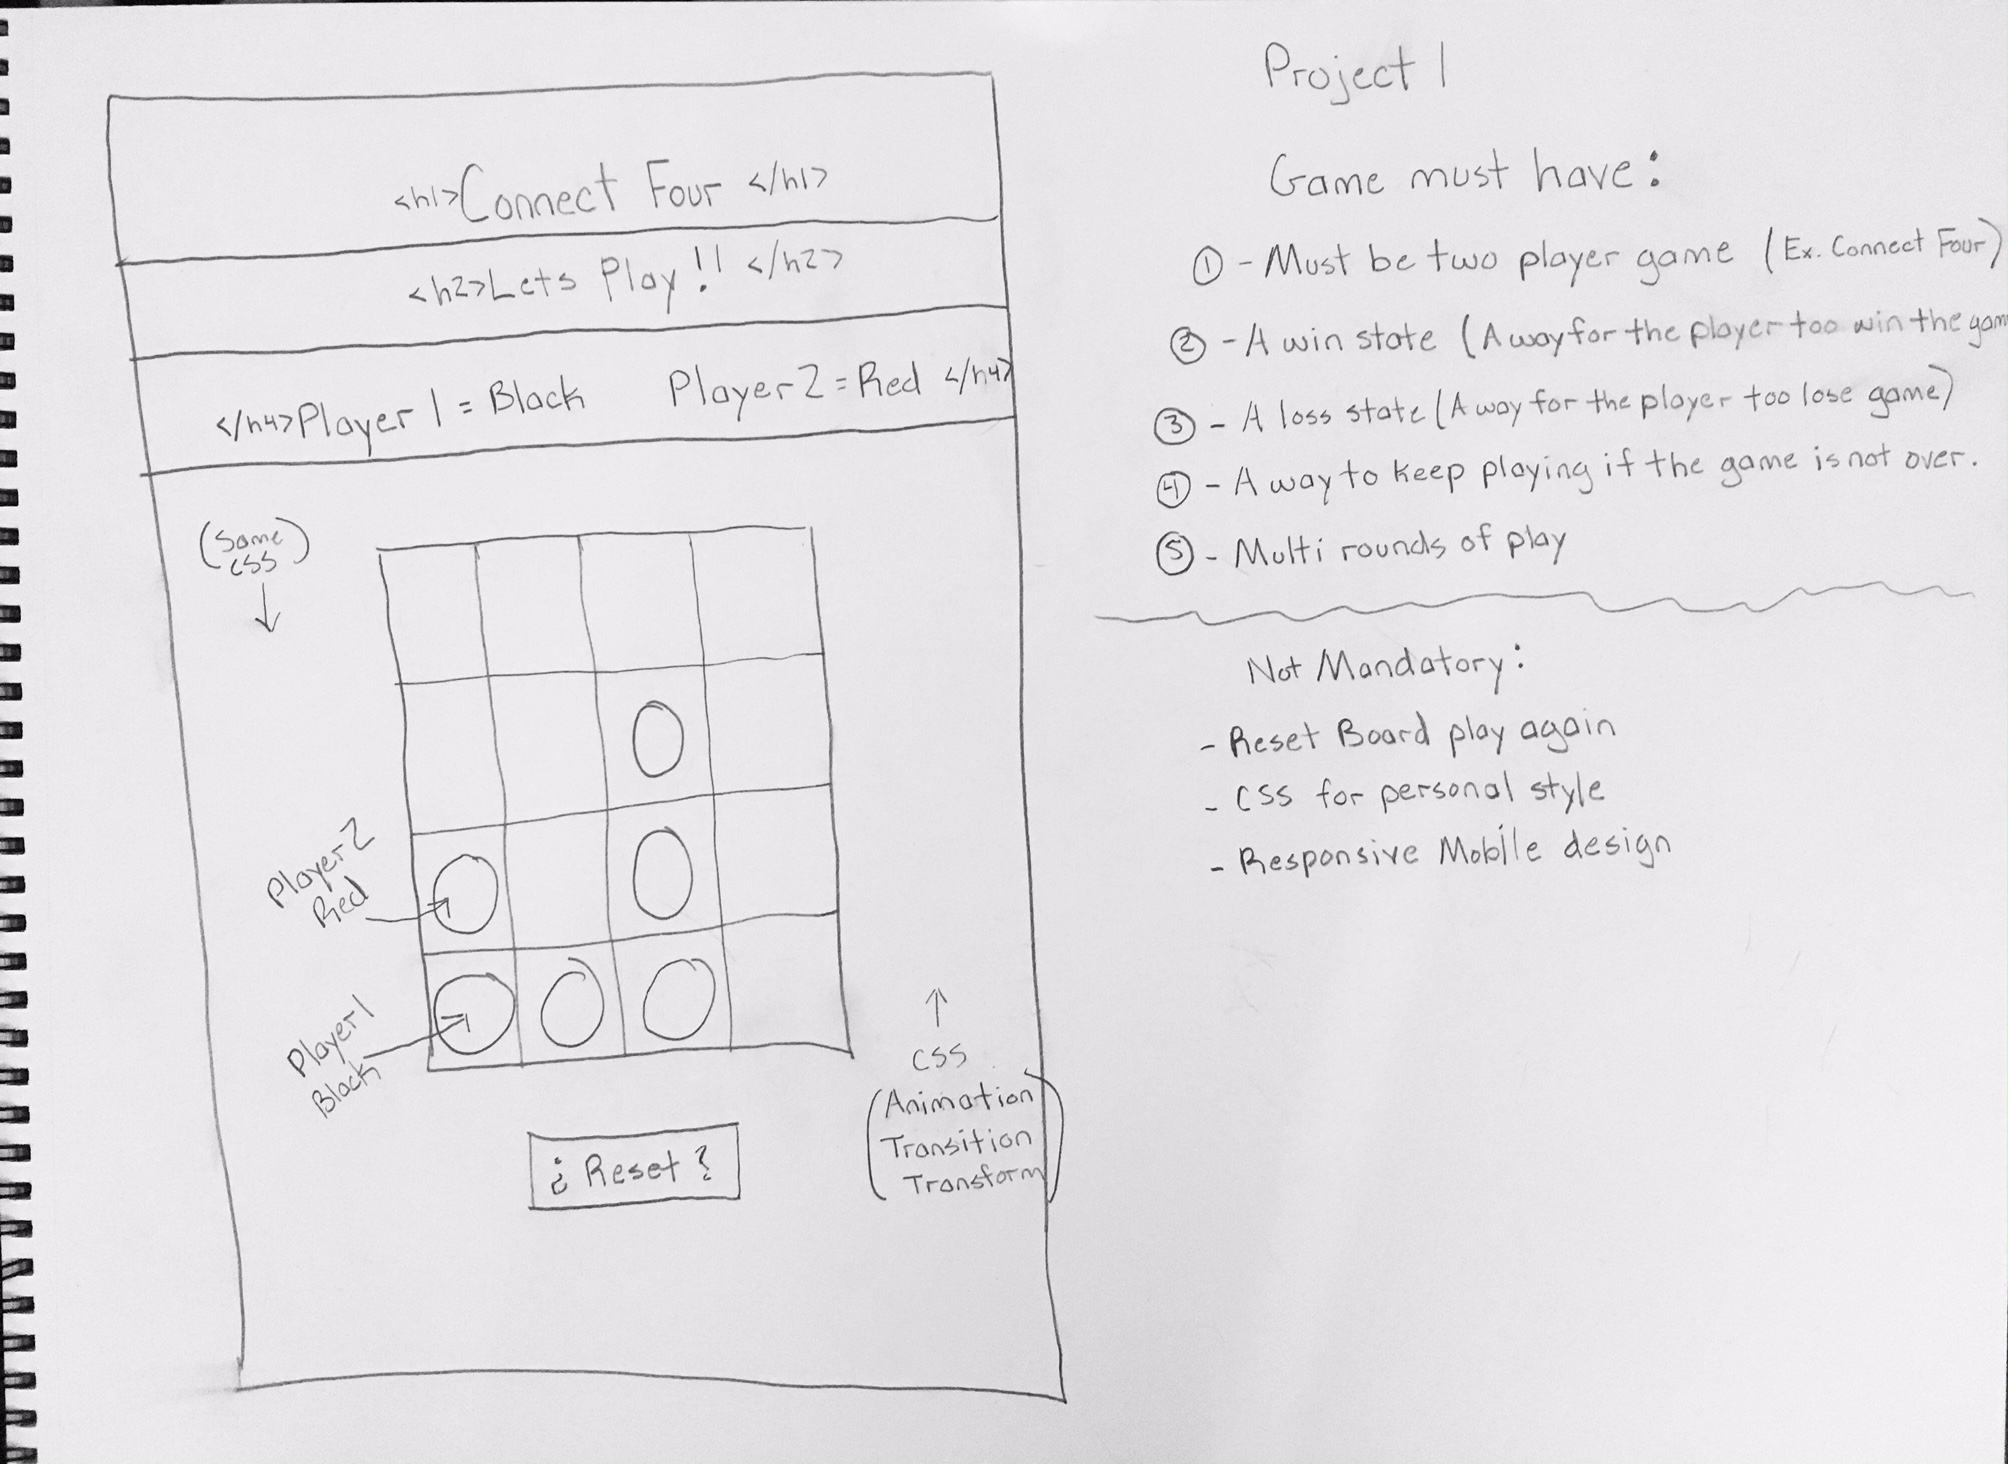 <h1>Connect Four </h1>
<h2>Lets Play!! </h2>
</h4>Player 1 = Black Player 2 = Red </h4>
(Same
css)
Player 2
Red
Player 1
Black
css
(Animation
Transition
Transform)
¿ Reset ?
Project 1
Game must have:
① - Must be two player game (Ex. Connect Four)
② - A win state (A way for the player too win the gam
③ - A loss state (A way for the player too lose game)
④ - A way to keep playing if the game is not over.
⑤ - Multi rounds of play
Not Mandatory:
- Reset Board play again
- CSS for personal style
- Responsive Mobile design